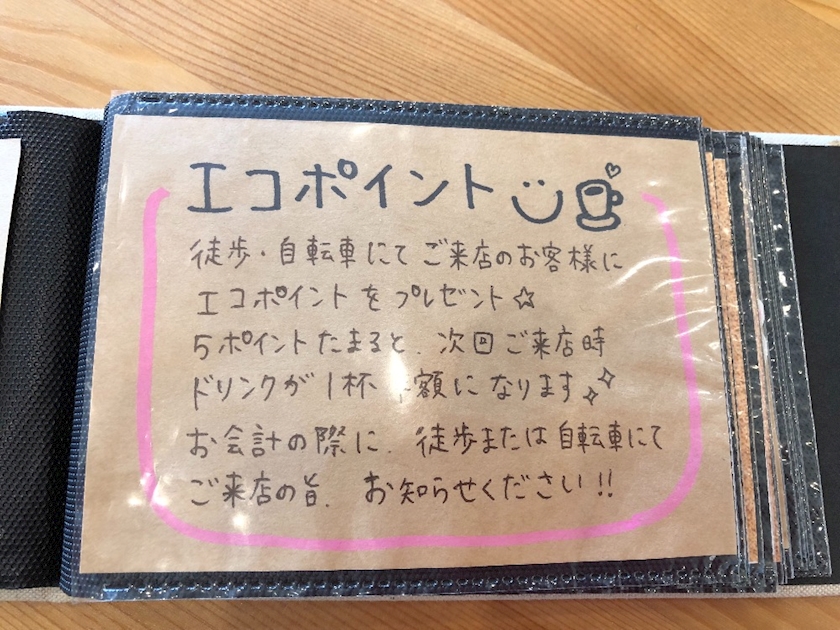 エコポイント
徒歩・自転車にて ご来店のお客様に
エコポイントをプレゼント☆
5ポイントたまると、次回ご来店時
ドリンクが1杯 額になります
お会計の際に、徒歩または自転車にて
ご来店の旨、お知らせください!!